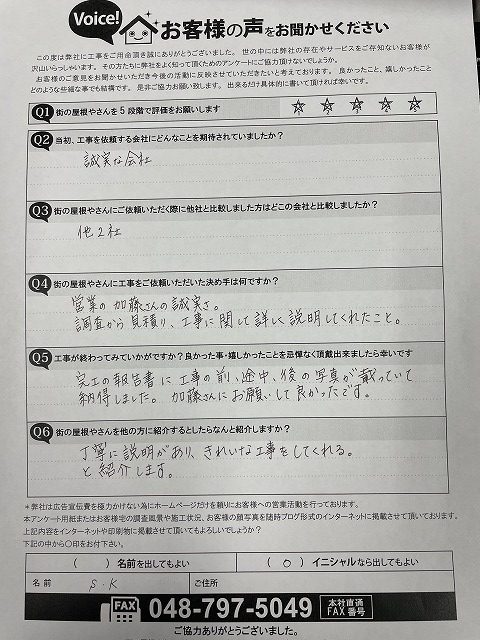 Voice! お客様の声をお聞かせください
この度は弊社に工事をご用命頂き誠にありがとうございました。世の中には弊社の存在やサービスをご存知ないお客様が
沢山いらっしゃいます。その方たちに弊社をよく知って頂くためのアンケートにご協力頂けないでしょうか。
お客様のご意見をお聞かせいただき今後の活動に反映させていただきたいと考えております。良かったこと、嬉しかったこと
どのような些細な事でも結構です。是非ご協力お願い致します。出来るだけ具体的に書いて頂ければ幸いです。
Q1 街の屋根やさんを5段階で評価をお願いします ☆ ☆ ☆ ☆ ☆
Q2 当初、工事を依頼する会社にどんなことを期待されていましたか?
誠実な会社
Q3 街の屋根やさんにご依頼いただく際に他社と比較しました方はどこの会社と比較しましたか?
他2社
Q4 街の屋根やさんに工事をご依頼いただいた決め手は何ですか?
営業の加藤さんの誠実さ。
調査から見積り、工事に関して詳しく説明してくれたこと。
Q5 工事が終わってみていかがですか?良かった事・嬉しかったことを忌憚なく頂戴出来ましたら幸いです
完工の報告書に工事の前、途中、後の写真が載っていて
納得しました。加藤さんにお願いして良かったです。
Q6 街の屋根やさんを他の方に紹介するとしたらなんと紹介しますか?
丁寧に説明があり、きれいな工事をしてくれる。
と紹介します。
*弊社は広告宣伝費を極力かけない為にホームページだけを頼りにお客様への営業活動を行っております。
本アンケート用紙またはお客様宅の調査風景や施工状況、お客様の顔写真を随時ブログ形式のインターネットに掲載させて頂いております。
上記内容をインターネットや印刷物に掲載させて頂いてもよろしいでしょうか?
下記の中から〇印をお付下さい。
( ) 名前を出してもよい ( ○ ) イニシャルなら出してもよい
名前 S.K ご住所
FAX 048-797-5049 本社直通 FAX番号
ご協力ありがとうございました。